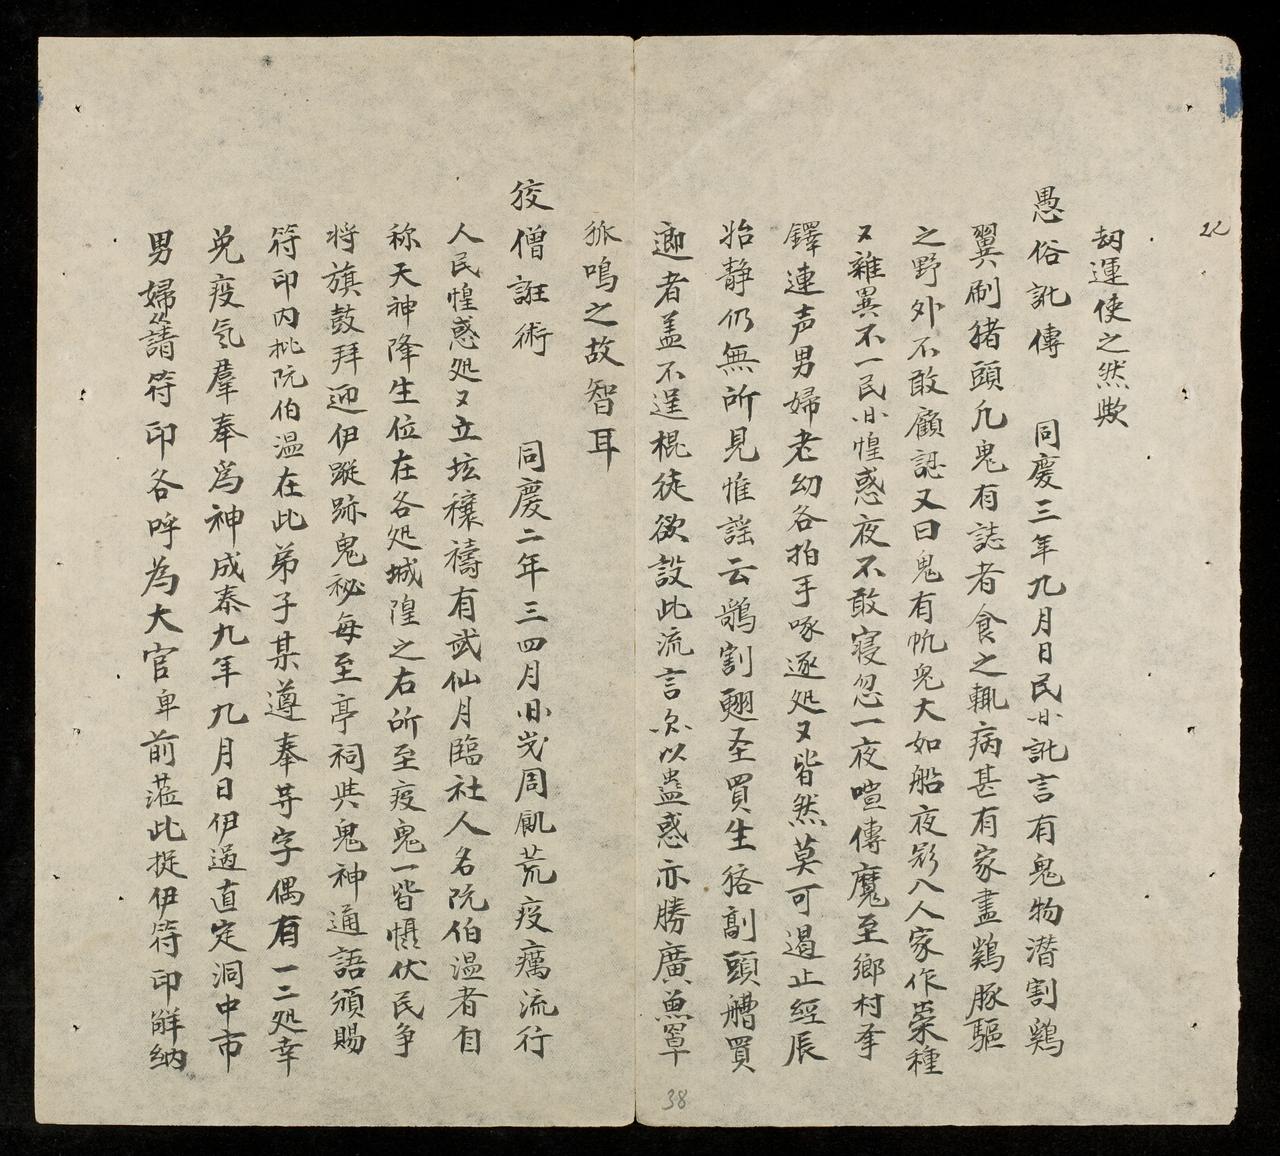 22
劫運使之然歟
愚俗訛傳 同慶三年九月日民间訛言有鬼物潜割鷄
翼刷猪頭凢鬼有誌者食之輒病甚有家盡鷄豚驅
之野外不敢顧認又曰鬼有帆皃大如船夜飛入人家作祟種
又雜異不一民间惶惑夜不敢寝忽一夜喧傳魔至鄉村挙
鐸連声男婦老幼各拍手啄逐処又皆然莫可遏止經辰
始静仍無所見惟謡云鷄割翅圣買生猪劀頭艚買
逈者盖不逞棍徒欲設此流言以蠱惑亦勝廣魚罩
狐鳴之故智耳
狡僧誑術 同慶二年三四月间歲周飢荒疫癘流行
人民惶惑処又立坛禳禱有武仙月臨社人名阮伯温者自
称天神降生位在各処城隍之右所至疫鬼一皆懾伏民争
将旗鼓拜迎伊蹤跡鬼秘每至亭祠與鬼神通語頒賜
符印内批阮伯温在此弟子某遵奉等字偶有一二処幸
免疫気羣奉為神成泰九年九月日伊過直定洞中市
男婦請符印各呼為大官卑前蒞此捉伊符印解纳
38